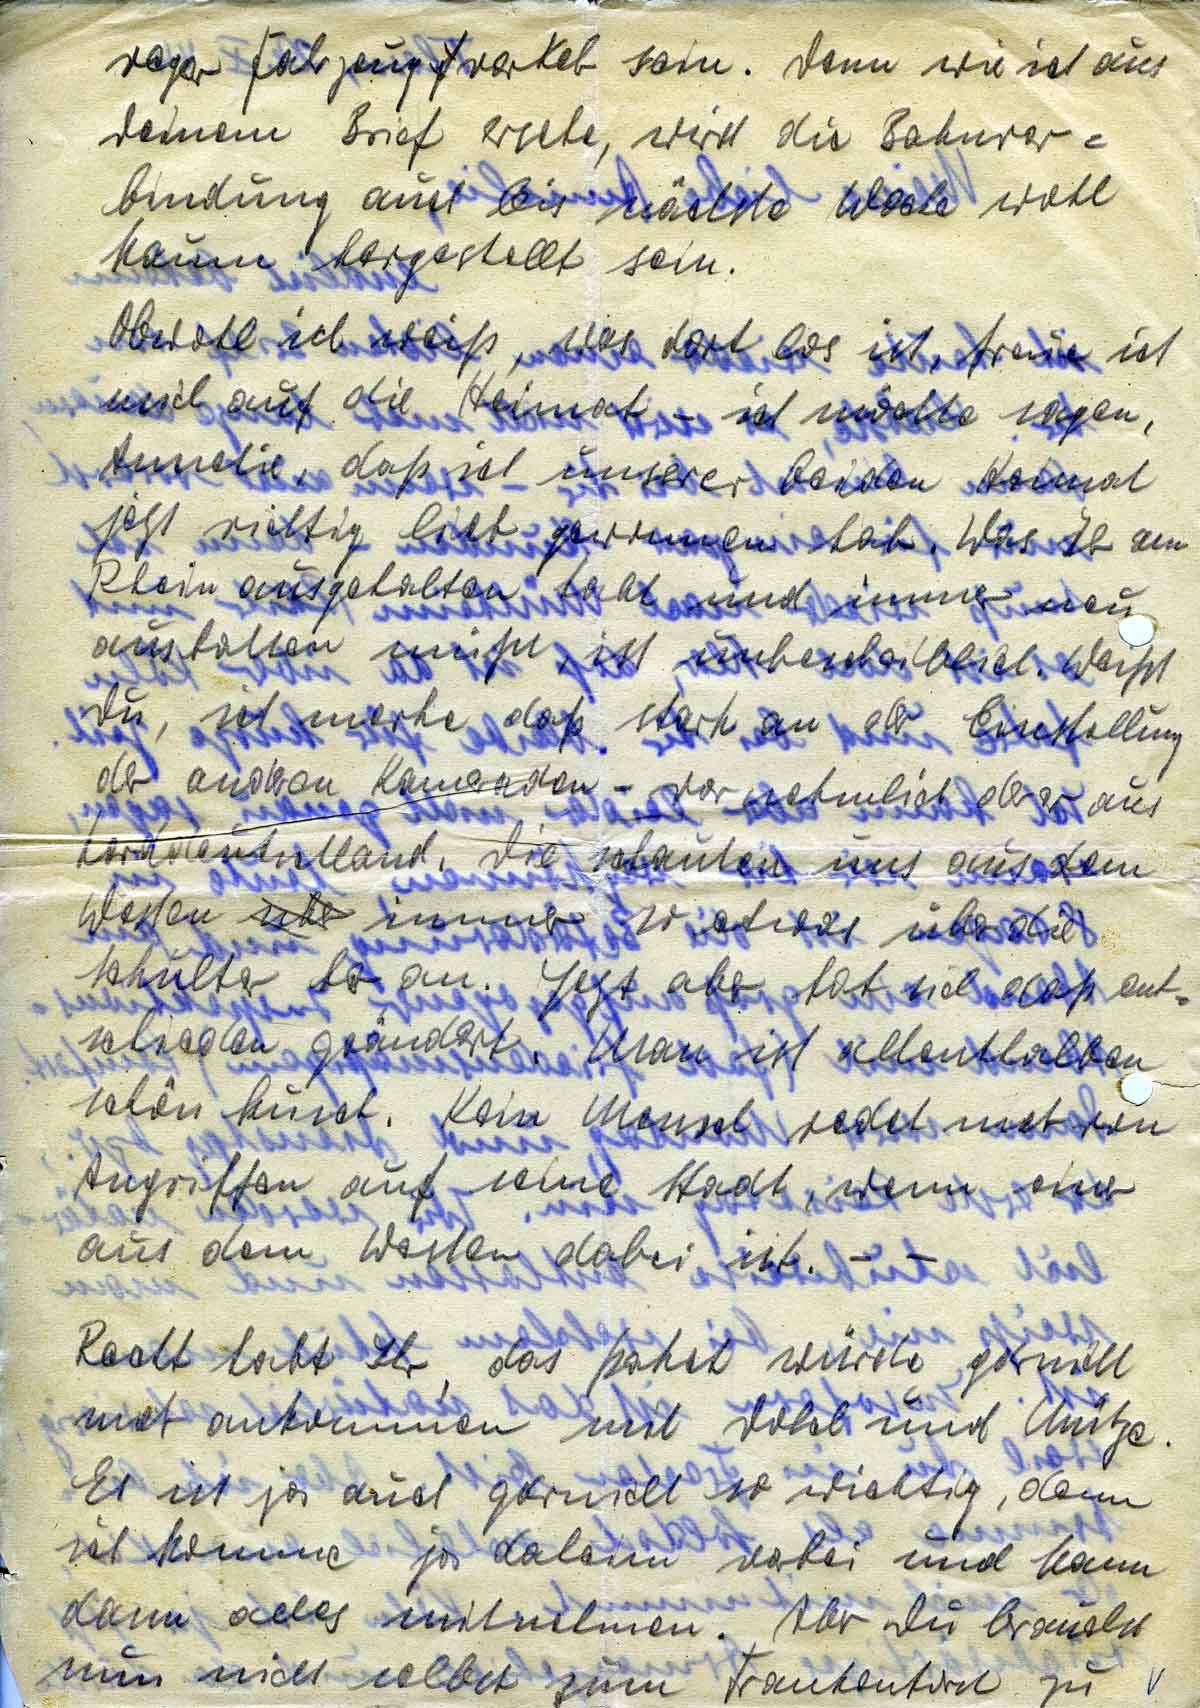 reger Fahrzeugverkeh sein. Denn wie ich aus
deinem Brief ersehe, wird die Bahnver=
bindung auch bis nächste Woche wohl
kaum hergestellt sein.
Obwohl ich weiß, was dort los ist, freue ich
mich auf die Heimat – ich möchte sagen,
Annelie, daß ich unserer beiden Heimat
jetzt richtig lieb gewonnen hab. Was Ihr am
Rhein ausgehalten habt und immer neu
aushalten müßt, ist unbeschreiblich. Weißt
Du, ich merke daß stark an der Einstellung
der anderen Kameraden – vornehmlich derer aus
Norddeutschland. Die schauten uns aus dem
Westen immer so etwas über die
Schulter her an. Jetzt aber hat sich daß ent=
schieden geändert. Man ist allenthalben
schön kusch. Kein Mensch redet mehr von
Angriffen auf seine Stadt, wenn einer
aus dem Westen dabei ist. – –
Recht habt Ihr, das Paket würde garnicht
mehr ankommen mit Dolch und Mütze.
Es ist ja auch garnicht so wichtig, denn
ich komme ja daheim vorbei und kann
dann alles mitnehmen. Aber Du brauchst
nun nicht selbst zum zu